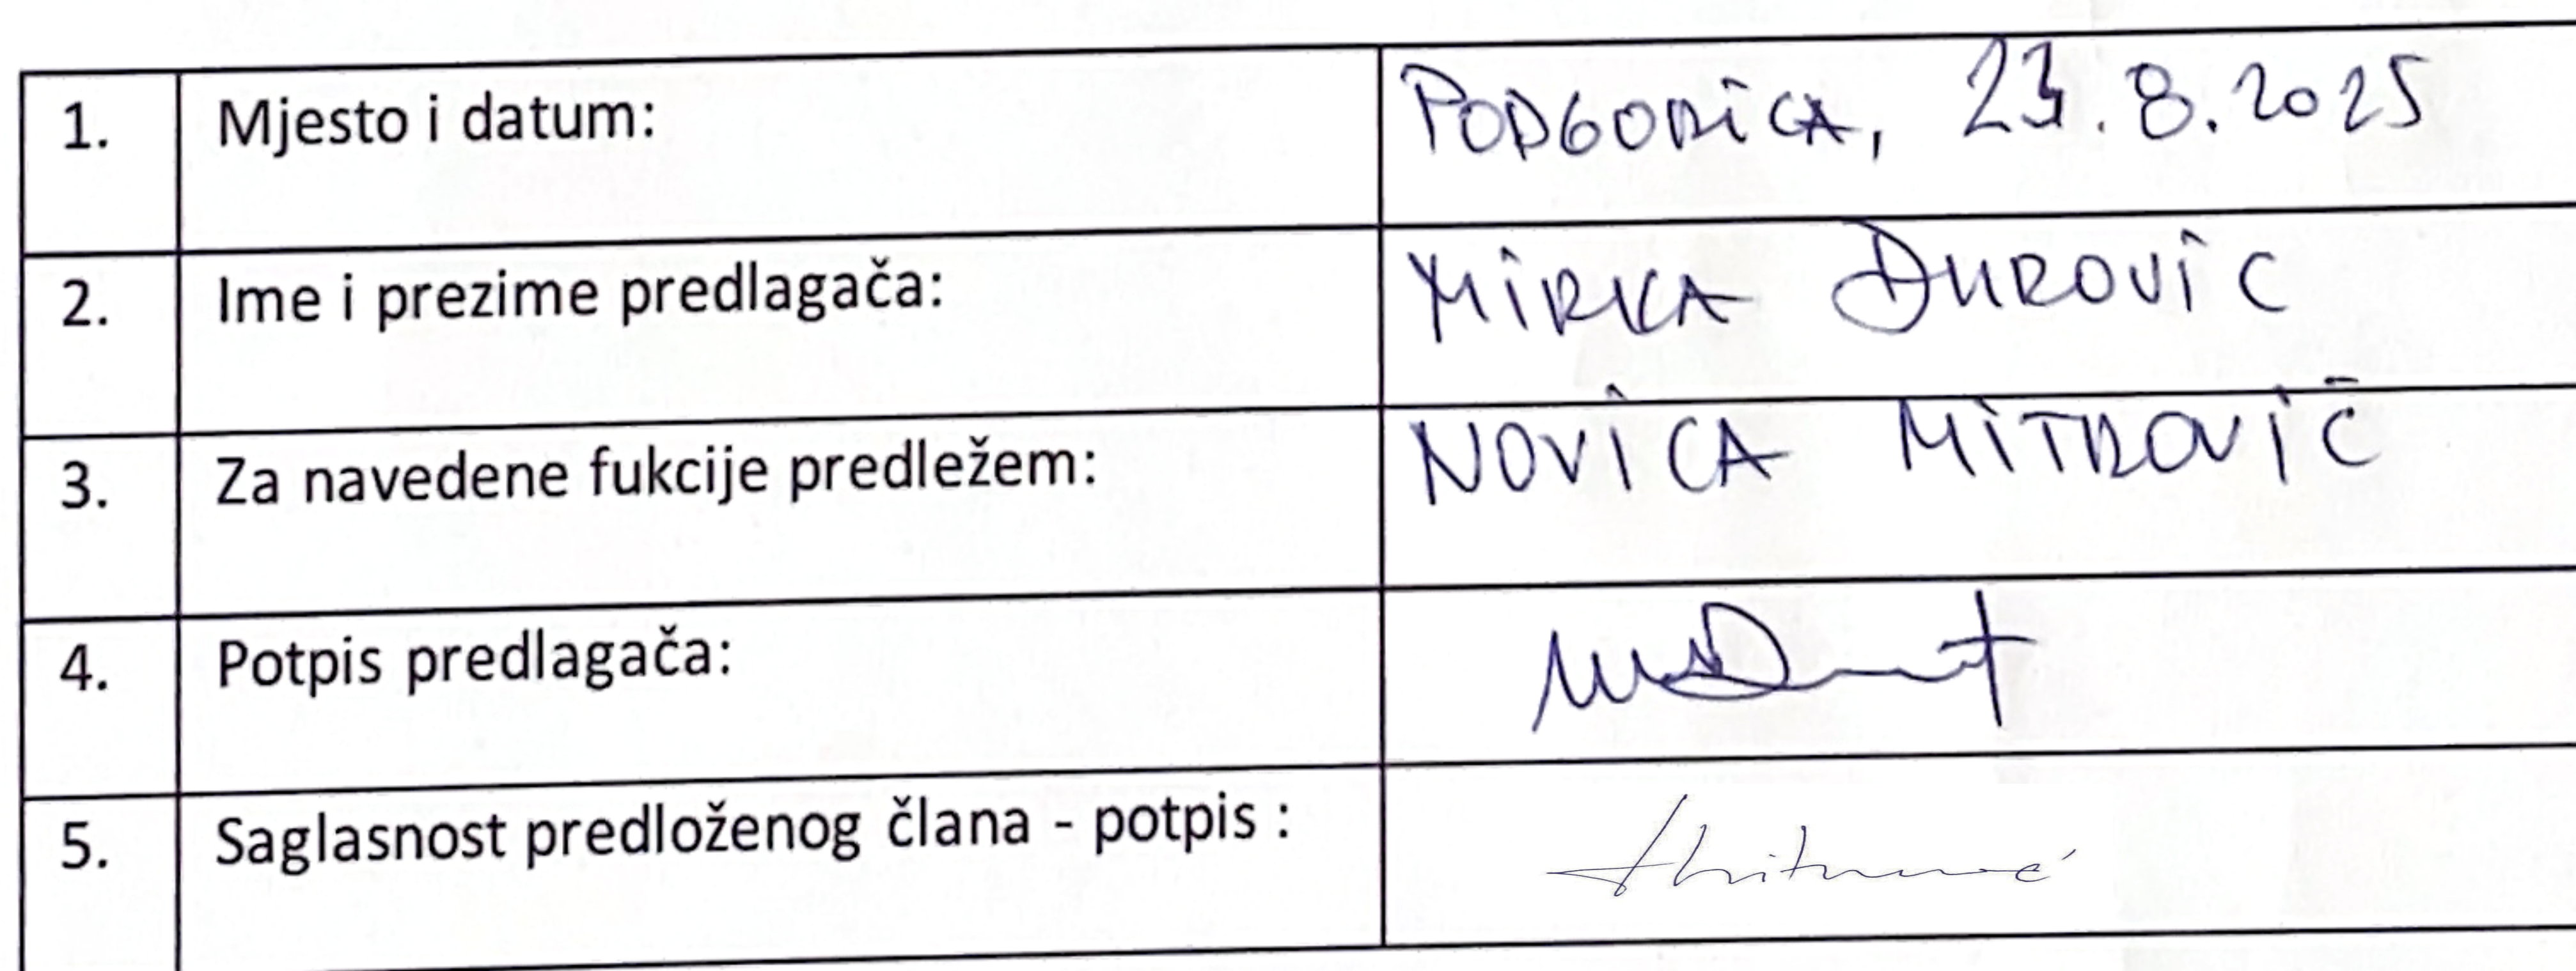 1. Mjesto i datum: PODGORICA, 23.8.2025
2. Ime i prezime predlagača: MIRKA ĐUROVIC
3. Za navedene fukcije predležem: NOVICA MITROVIĆ
4. Potpis predlagača:
5. Saglasnost predloženog člana - potpis :